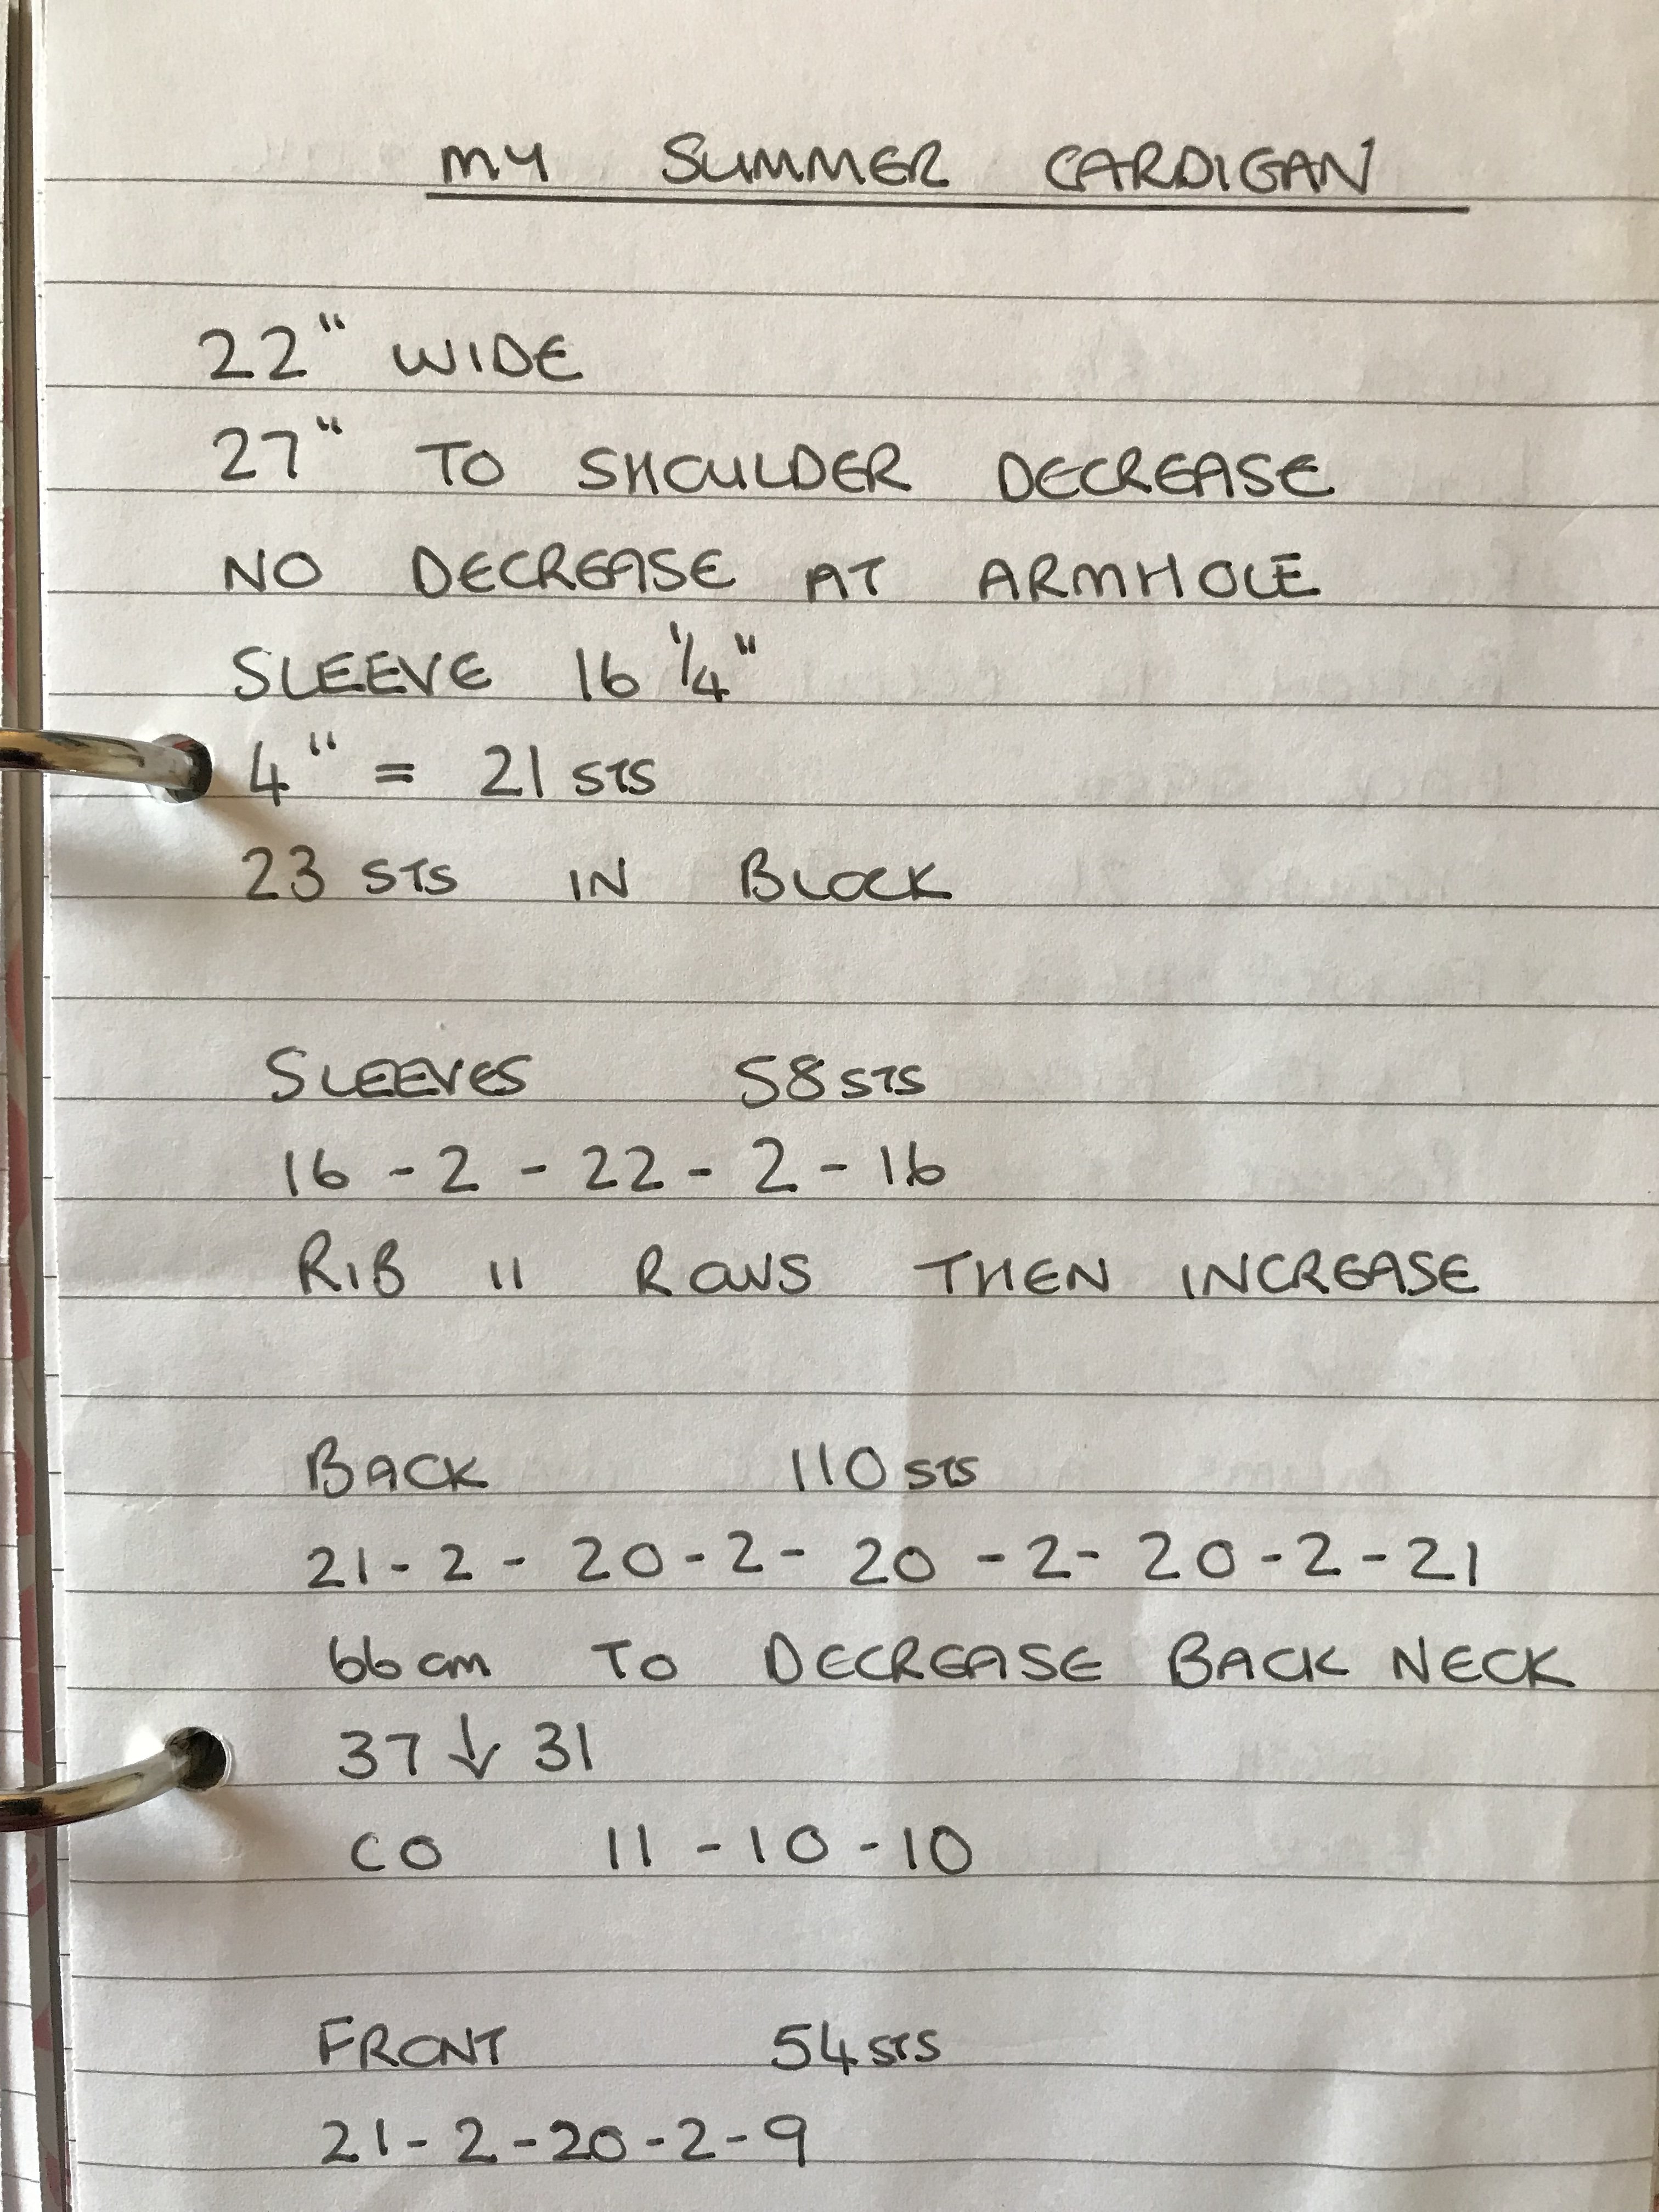 MY SUMMER CARDIGAN
22" WIDE
27" TO SHOULDER DECREASE
NO DECREASE AT ARMHOLE
SLEEVE 16 1/4"
4" = 21 STS
23 STS IN BLOCK
SLEEVES 58 STS
16 - 2 - 22 - 2 - 16
RIB 11 ROWS THEN INCREASE
BACK 110 STS
21 - 2 - 20 - 2 - 20 - 2 - 20 - 2 - 21
66 cm TO DECREASE BACK NECK
37 ↓ 31
CO 11 - 10 - 10
FRONT 54 STS
21 - 2 - 20 - 2 - 9